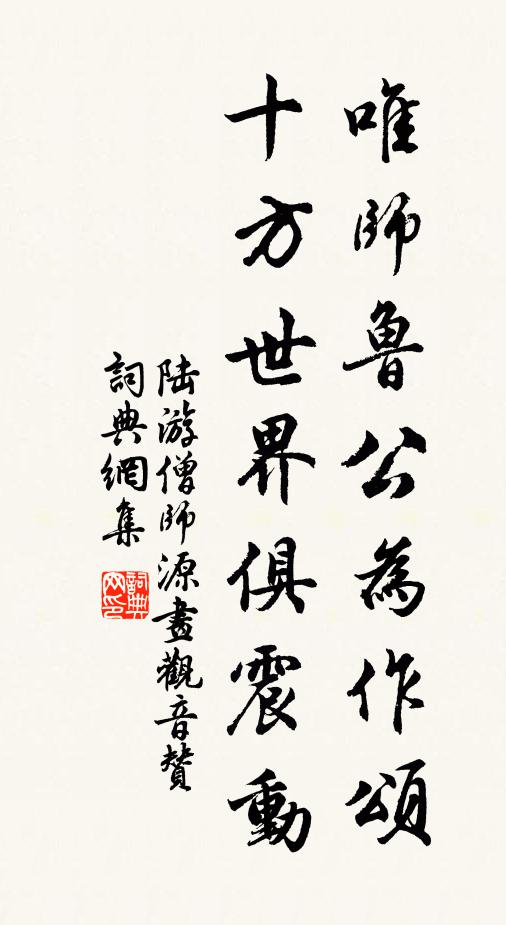 唯師魯公為作頌
十方世界俱震動
陆游僧師源畫觀音贊
詞典網集
詞典网印